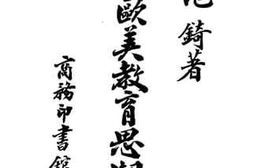 錡著
歐美教育思潮
商務印書館